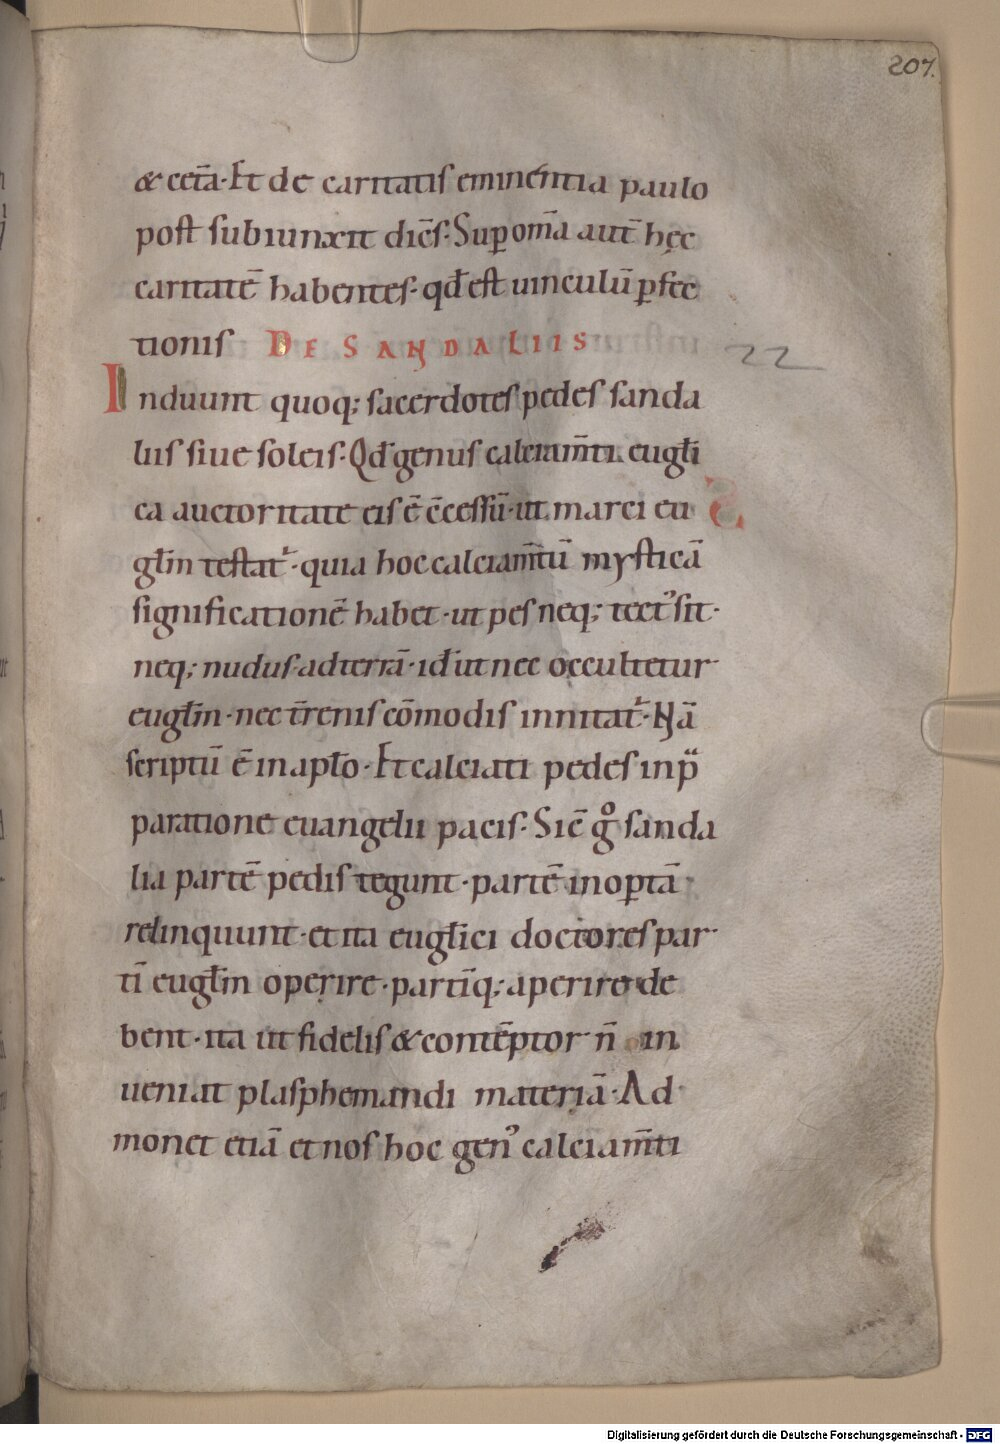 207.
& cet̄a · Et de caritatis eminentia paulo
post subiunxit dicēs · Sup̲ om̄a aut̄ hęc
caritatē habentes · qđ est uinculū p̲fec
tionis DE SANDALIIS
22
Induunt quoq; sacerdotes pedes sanda
liis siue soleis · Qđ genus calciam̄ti eugl̄i
ca auctoritate eis ē c̄cessū · ut marci eu
gl̄iū testat᷑ · quia hoc calciam̄tū mysticā
significationē habet · ut pes neq; tect᾿ sit ·
neq; nudus ad terrā · id̄ ut nec occultetur
eugl̄iū · nec t̄renis cōmodis innitat᷑ · Nā
scriptū ē in apl̄o · Et calciati pedes in p̄
paratione euangelii pacis · Sic̄ gͦ sanda
lia partē pedis tegunt · partē inop̲tā
relinquunt · et ita eugl̄ici doctores par
tī eugl̄iū operire · partīq; aperire de
bent · ita ut fidelis & contēptor n̄ in
ueniat plasphemandi materiā · Ad
monet etiā et nos hoc gen᾿ calciam̄ti
Digitalisierung gefördert durch die Deutsche Forschungsgemeinschaft - DFG